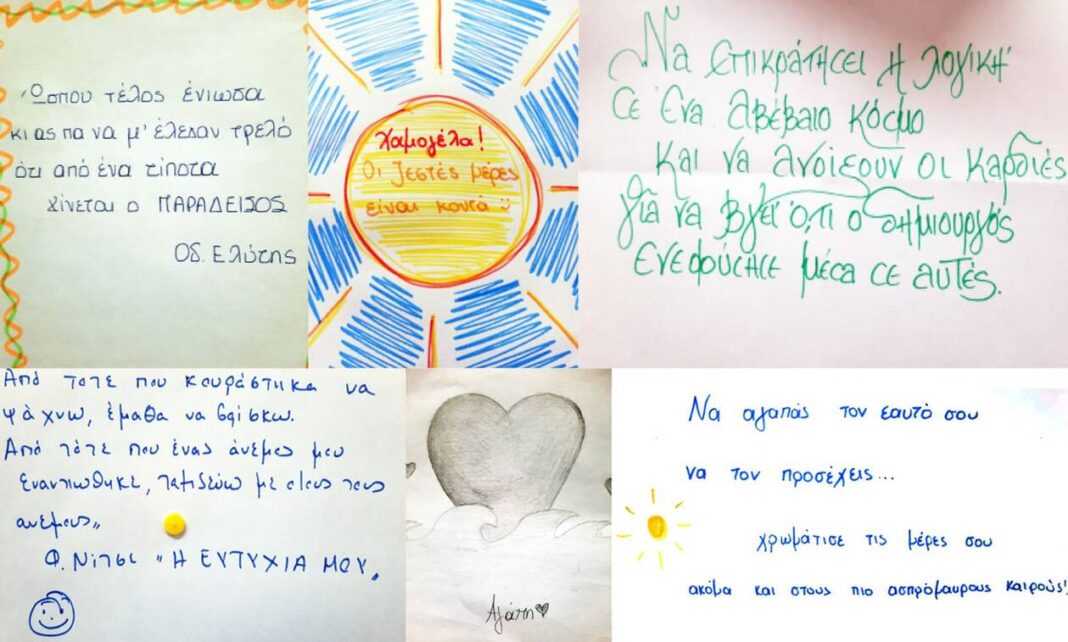 Ώσπου τέλος ένιωσα
κι ας πα να μ' έλεγαν τρελό
ότι από ένα τίποτα
γίνεται ο ΠΑΡΑΔΕΙΣΟΣ
Οδ. Ελύτης
Χαμογέλα!
Οι ζεστές μέρες
είναι κοντά
Να επικρατήσει η λογική
σε ένα αβέβαιο κόσμο
και να ανοίξουν οι καρδιές
για να βγει ό,τι ο δημιουργός
ενεφύσησε μέσα σε αυτές.
Από τότε που κουράστηκα να
ψάχνω, έμαθα να βρίσκω.
Από τότε που ένας άνεμος μου
εναντιώθηκε, ταξιδεύω με όλους τους
ανέμους"
Φ. Νίτσε "Η ΕΥΤΥΧΙΑ ΜΟΥ"
Αγάπη
Να αγαπάς τον εαυτό σου
να τον προσέχεις...
χρωμάτισε τις μέρες σου
ακόμα και στους πιο ασπρόμαυρους καιρούς!